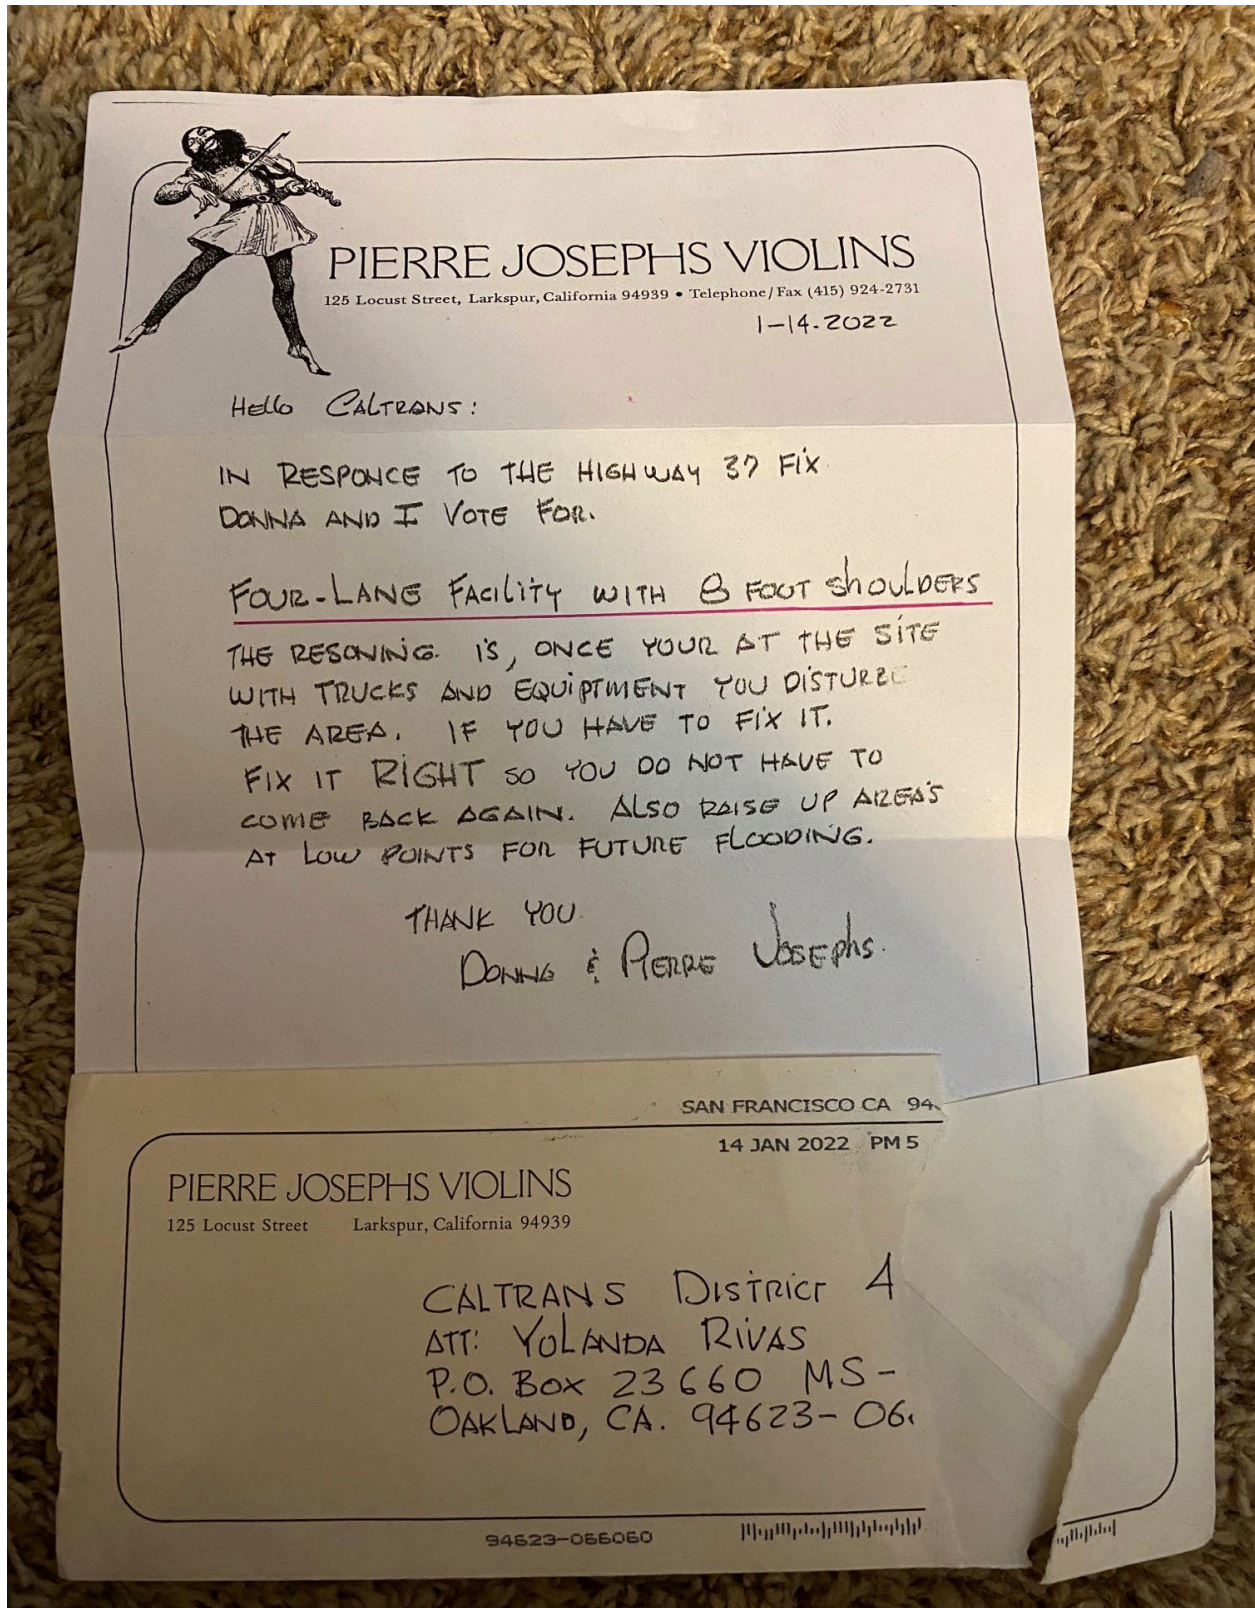 PIERRE JOSEPHS VIOLINS
125 Locust Street, Larkspur, California 94939 • Telephone/Fax (415) 924-2731
1-14-2022
HELLO CALTRANS:
IN RESPONCE TO THE HIGHWAY 37 FIX
DONNA AND I VOTE FOR.
FOUR-LANE FACILITY WITH 8 FOOT SHOULDERS
THE RESONING IS, ONCE YOUR AT THE SITE
WITH TRUCKS AND EQUIPTMENT YOU DISTURBE
THE AREA. IF YOU HAVE TO FIX IT.
FIX IT RIGHT SO YOU DO NOT HAVE TO
COME BACK AGAIN. ALSO RAISE UP AREA'S
AT LOW POINTS FOR FUTURE FLOODING.
THANK YOU
DONNA & PIERRE JOSEPHS.
SAN FRANCISCO CA 94
14 JAN 2022 PM 5
PIERRE JOSEPHS VIOLINS
125 Locust Street Larkspur, California 94939
CALTRANS DISTRICT 4
ATT: YOLANDA RIVAS
P.O. BOX 23660 MS-
OAKLAND, CA. 94623-06
94623-066060